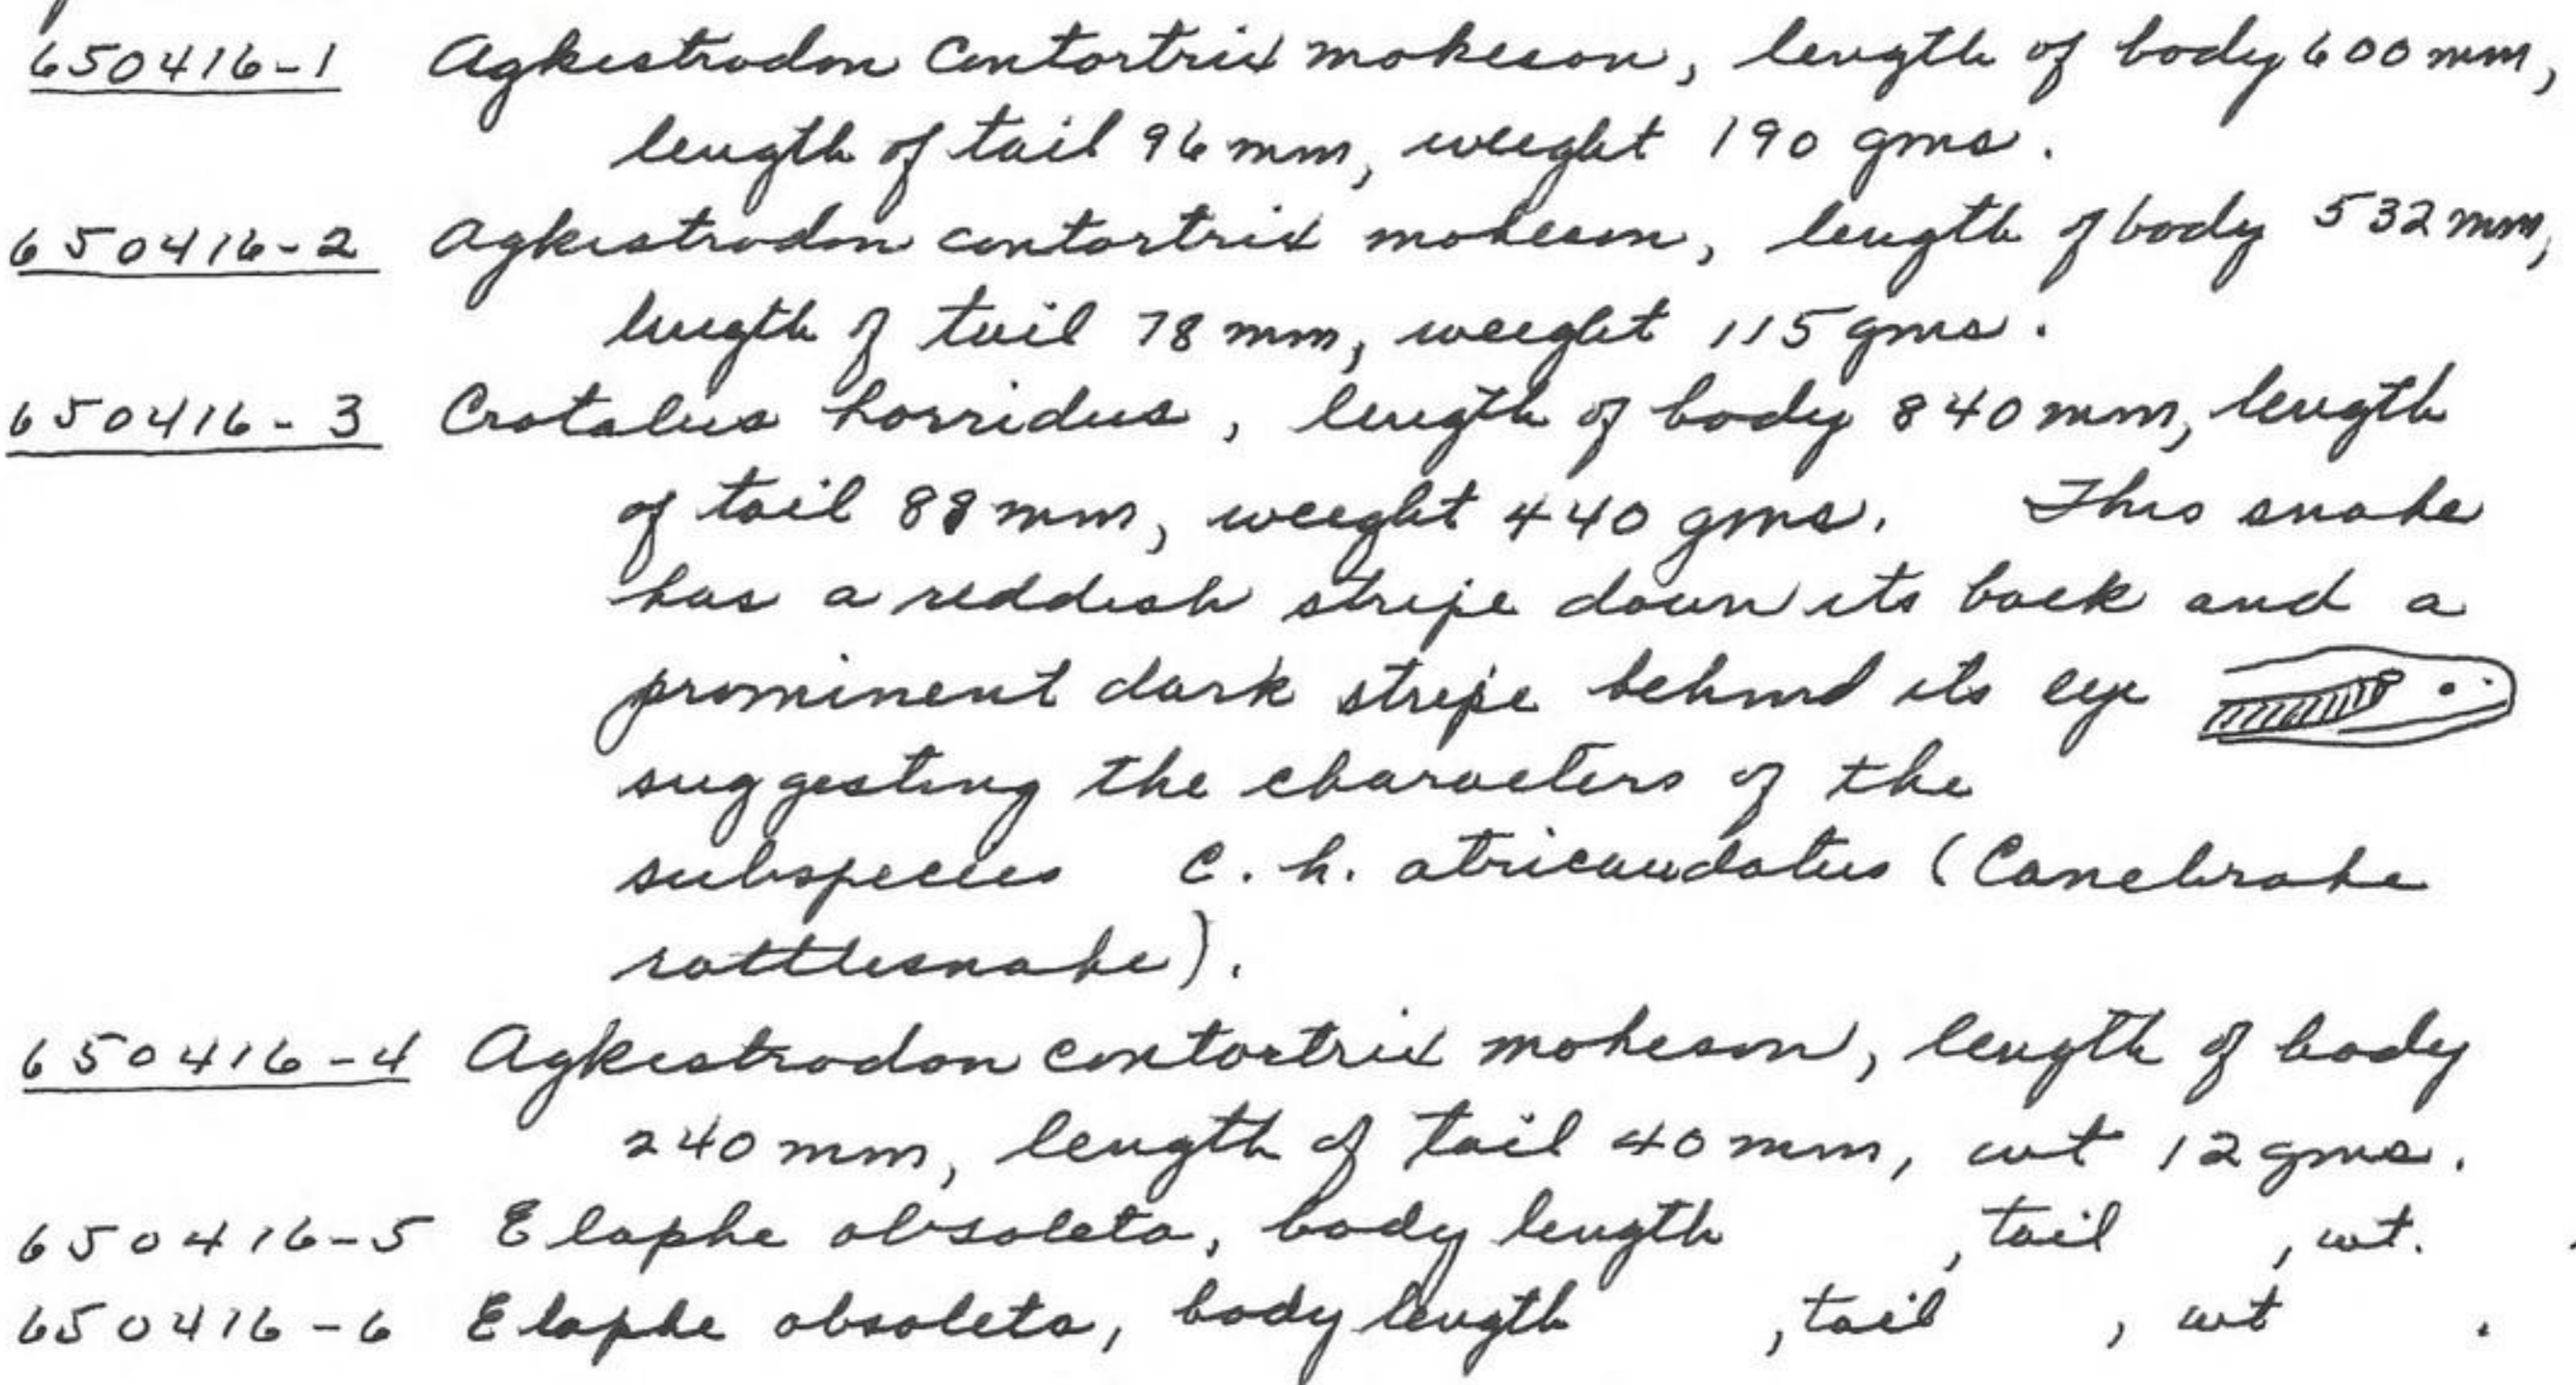 650416-1 Agkistrodon contortrix mokeson, length of body 600 mm,
length of tail 96 mm, weight 190 gms.
650416-2 Agkistrodon contortrix mokeson, length of body 532 mm,
length of tail 78 mm, weight 115 gms.
650416-3 Crotalus horridus, length of body 840 mm, length
of tail 88 mm, weight 440 gms. This snake
has a reddish stripe down its back and a
prominent dark stripe behind its eye
suggesting the characters of the
subspecies C. h. atricaudatus (Canebrake
rattlesnake).
650416-4 Agkistrodon contortrix mokeson, length of body
240 mm, length of tail 40 mm, wt 12 gms.
650416-5 Elaphe obsoleta, body length , tail , wt. .
650416-6 Elaphe obsoleta, body length , tail , wt .